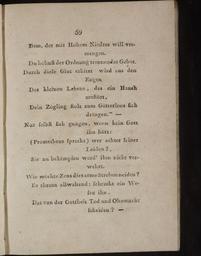 59
Dem, der mit Hohem Niedres will ver-
mengen.
Du behust der Ordnung trennendes Gebot.
Durch diese Glut entirret wird aus den
Fugen
Des kleinen Lebens, des ein Hauch
zerstört,
Dein Zögling stolz zum Götterloos sich
drängen." —
Nur selbst sich zwingen, wenn kein Gott
ihn hört:
(Prometheus sprach) wer achtet seiner
Leiden?
Sie zu bekämpfen werd' ihm nicht ver-
wehrt.
Wie möchte Zeus dies arme Streben neiden?
Er throne allwaltend: schreckt ein We-
sen ihn,
Das von der Gottheit Tod und Ohnmacht
scheiden? —